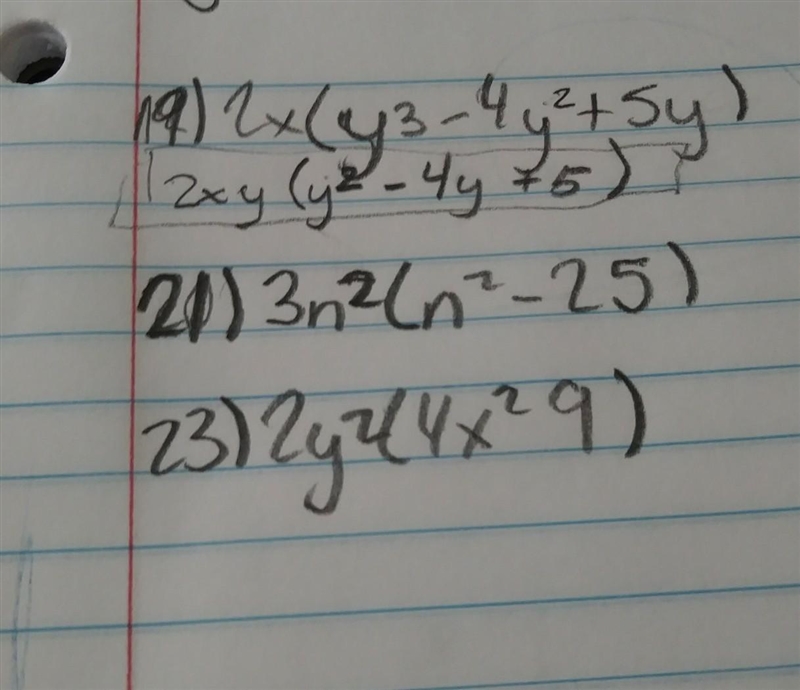 19) 2x(y3-4y²+5y)
2xy(y²-4y+5)
21) 3n²(n²-25)
23) 2y²(4x² 9)